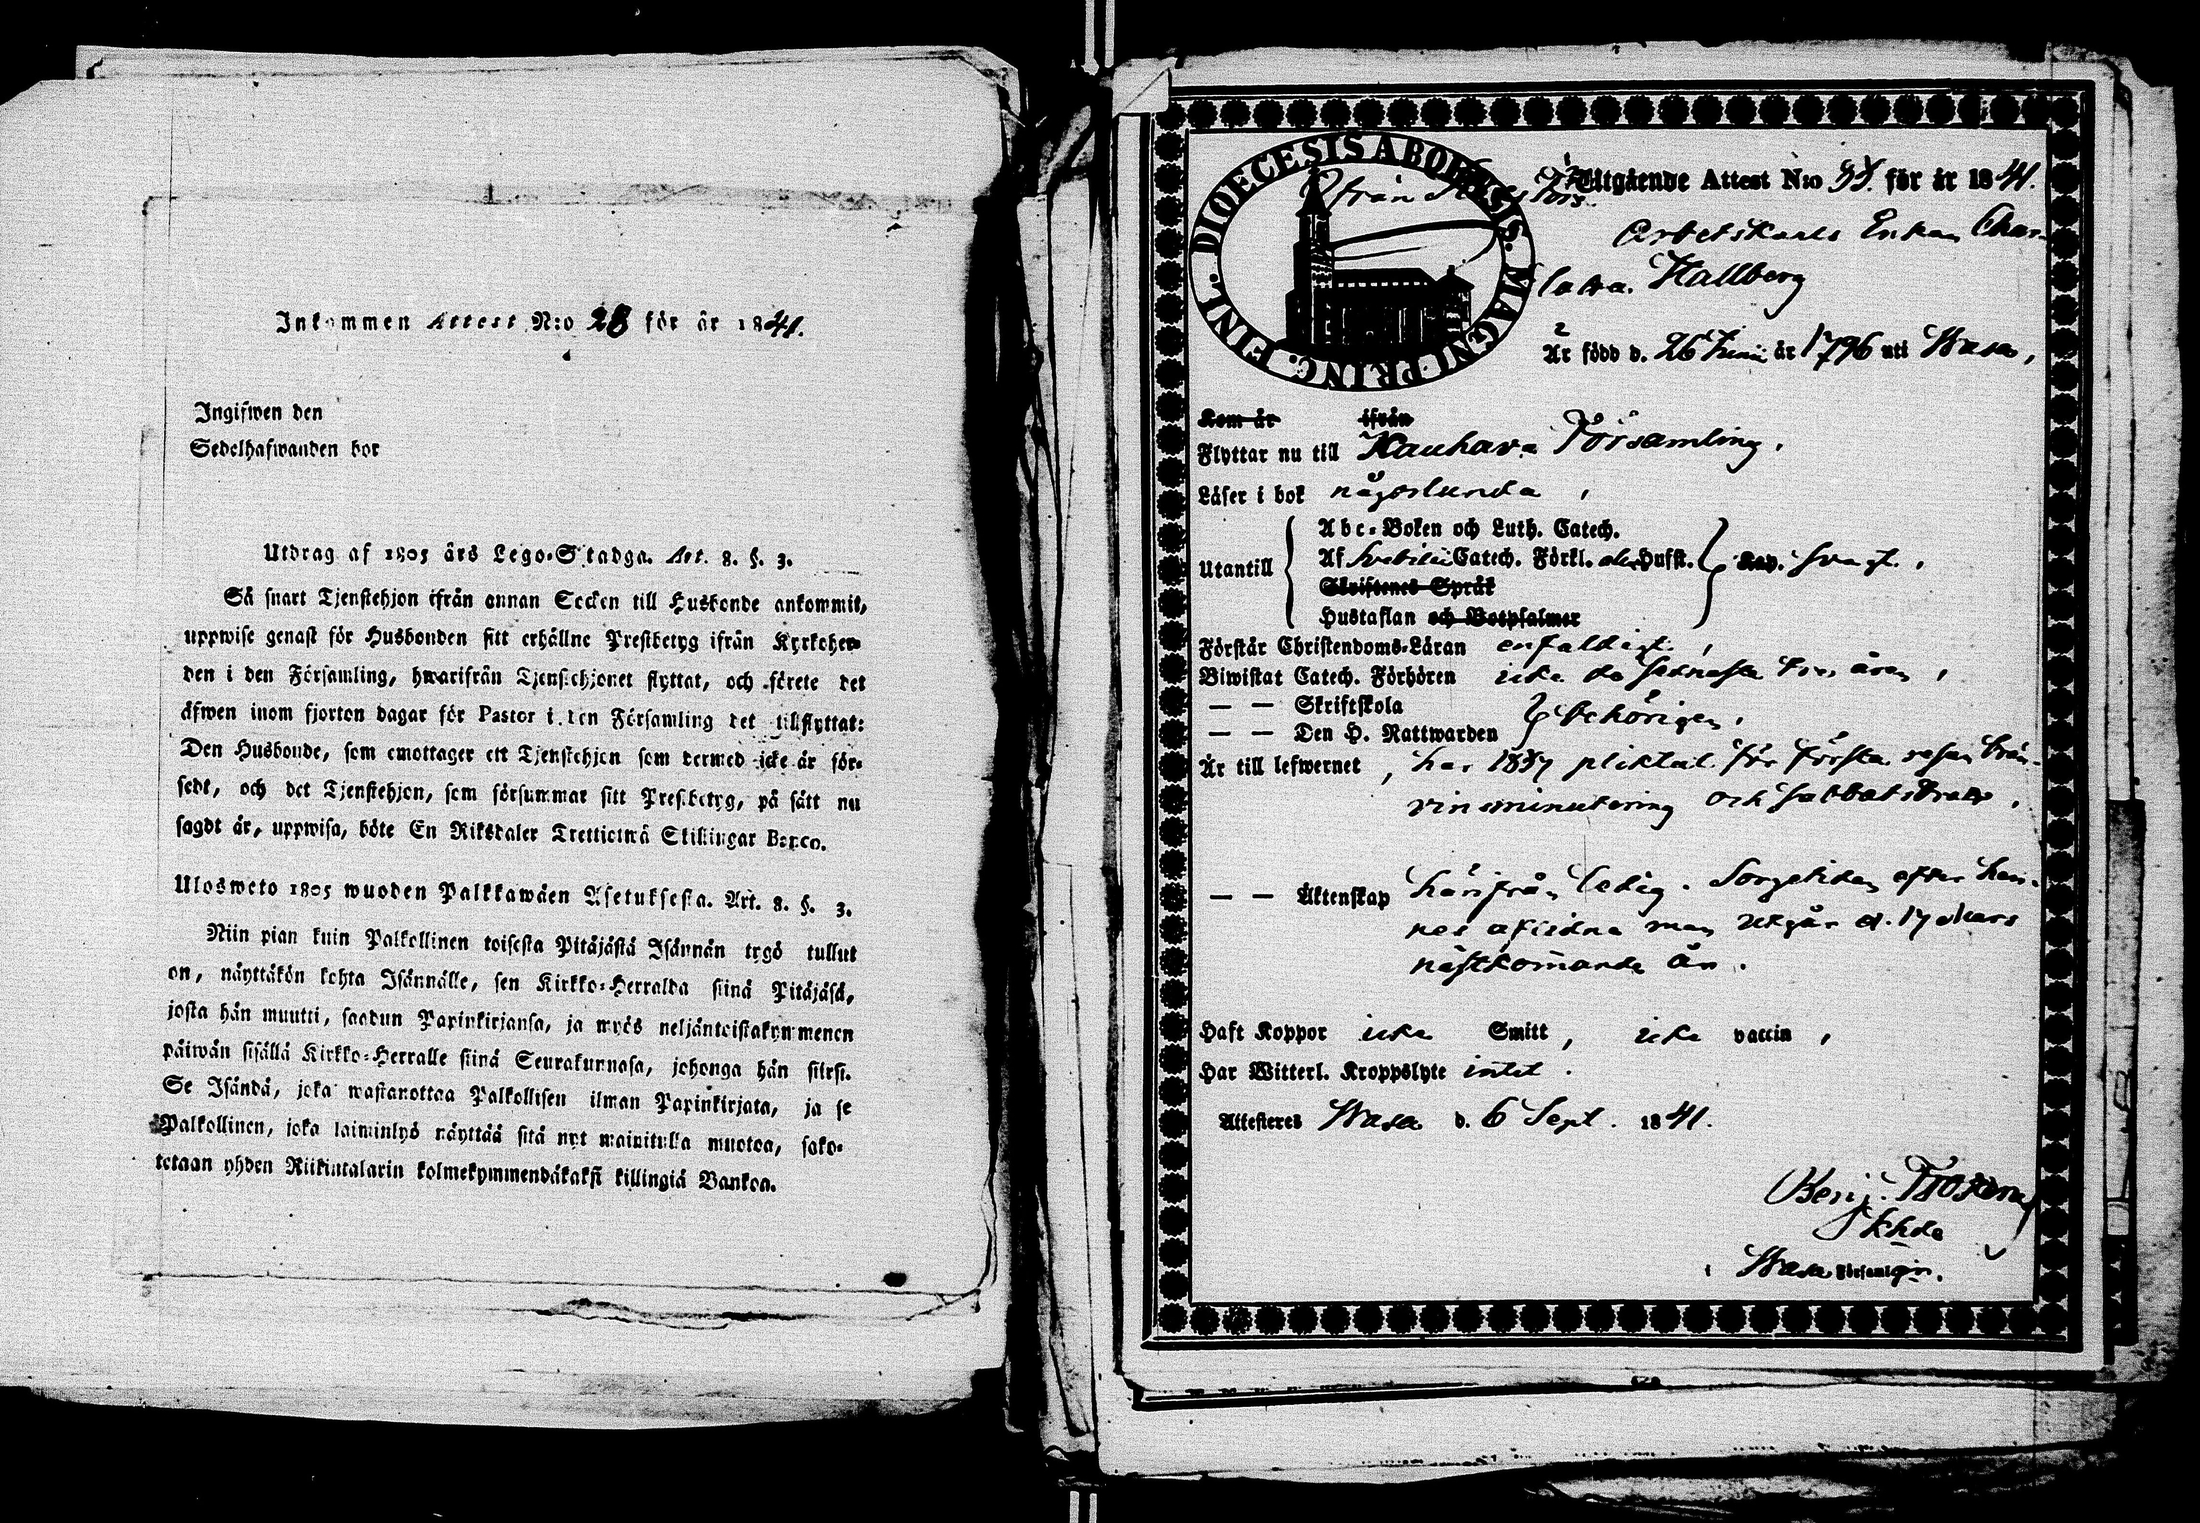 Inkommen Attest N:o 28 för år 1841.
Ingifwen den
Sedelhafwanden bor
Utdrag af 1805 års Lego-Stadga. Art. 8. §. 3.
Så snart Tjenstehjon ifrån annan Socken till Husbonde ankommit,
uppwise genast för Husbonden sitt erhållne Prestbetyg ifrån Kyrkoher-
den i den Församling, hwarifrån Tjenstehjonet flyttat, och förete det
äfwen inom fjorton dagar för Pastor i den Församling det tillflyttat:
Den Husbonde, som emottager ett Tjenstehjon som dermed icke är för-
sedt, och det Tjenstehjon, som försummar sitt Prestbetyg, på sätt nu
sagdt är, uppwisa, böte En Riksdaler Trettiotwå Skillingar Banco.
Ulosweto 1805 wuoden Palkkawäen Asetuksesta. Art. 8. §. 3.
Niin pian kuin Palkollinen toisesta Pitäjästä Isännän tygö tullut
on, näyttäkön kohta Isännälle, sen Kirkko-Herralda siinä Pitäjäsä,
josta hän muutti, saadun Papinkirjansa, ja myös neljäntoistakymmenen
päiwän sisällä Kirkko-Herralle siinä Seurakunnasa, johonga hän siirsi.
Se Isändä, joka wastanottaa Palkollisen ilman Papinkirjata, ja se
Palkollinen, joka laiminlyö näyttää sitä nyt mainitulla muotoa, sako-
tetaan yhden Riikintalarin kolmekymmendäkaksi killingiä Bankoa.
DIOECESIS ABOENSIS. MAGNI PRINC. FINL.
Utgående Attest N:o för år 1841.
från
Arbetskarls Enkan Char-
lotta Hallberg
Är född d. 26 Junii år 1796 uti Wasa,
Kom år ifrån
Flyttar nu till Kauhava Församling,
Läser i bok någorlunda,
Abc-Boken och Luth. Catech.
Utantill Af Svebilii Catech. Förkl. Hufst. Kap. svagt.,
Skriftenes Språk
Hustaflan och Botpsalmer
Förstår Christendoms-Läran enfaldigt,
Biwistat Catech. Förhören icke de sednaste åren,
— — Skriftskola
behörigen,
— — Den H. Nattwarden
År till lefwernet, har 1837 pliktat för första resan brän-
vinsminutering och sabbatsbrott,
— — Äktenskap härifrån ledig. Sorgetiden efter hen-
nes aflidna man utgår d. 17 Mars
nästkommande år.
Haft Koppor icke Smitt, icke vaccin,
Har Witterl. Kroppslyte intet.
Attesteres Wasa d. 6 Sept. 1841.
Benj. Frosterus
Khde
i Wasa Församlgn.